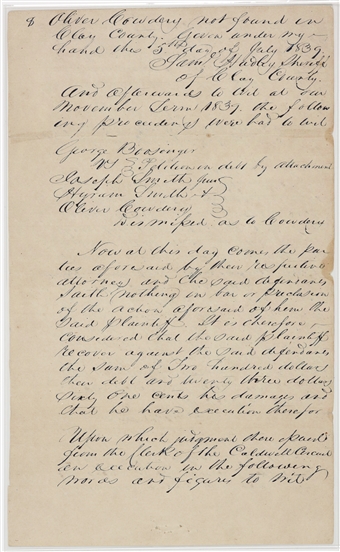 8 Oliver Cowdery not found in
Clay County. Given under my
hand this 5th day of July 1839.
Saml Hadley Sheriff
of Clay County.
And afterwards to wit at our
November Term 1839. the follow
ing proceedings were had to wit
George Boosinger
vs Petition in debt by attachment
Joseph Smith Junr
Hyrum Smith &
Oliver Cowdery
Dismissed as to Cowdery
Now at this day comes the par
ties aforesaid by their respective
attorneys and the said defendants
saith nothing in bar or preclusion
of the action aforesaid of him the
said plaintiff. It is therefore
considered that the said plaintiff
recover against the said defendants
the sum of Two hundred dollars
their debt and twenty three dollars
sixty one cents his damages and
that he have execution therefor
Upon which judgment there issued
from the Clerk of the Caldwell Circuit
an execution in the following
words and figures to wit